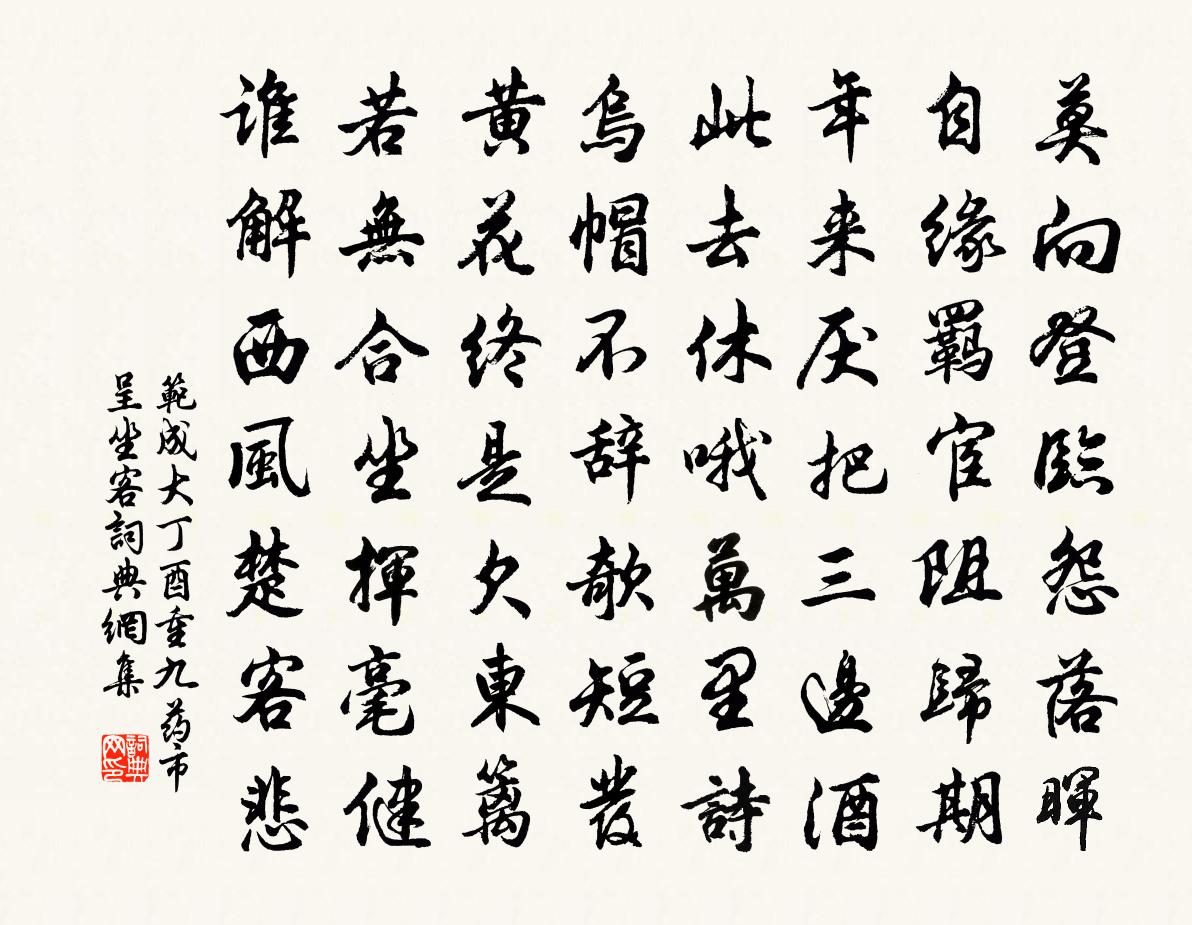 莫向登臨怨落暉
自緣羈宦阻歸期
年来厌把三邊酒
此去休哦萬里詩
烏帽不辞欹短發
黄花终是欠東篱
若無合坐揮毫健
谁解西風楚客悲
範成大丁酉重九药市
呈坐客詞典網集
詞典网印